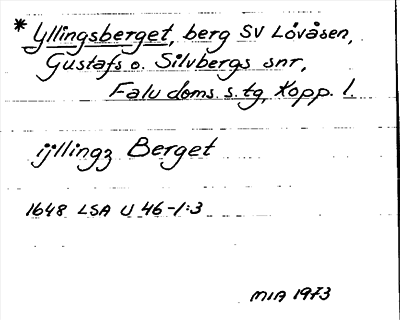 * Yllingsberget, berg SV Lövåsen,
Gustafs o. Silvbergs snr,
Falu doms. s. tg, Kopp. l.
ijllingz Berget
1648 LSA U 46-1:3
MIA 1973